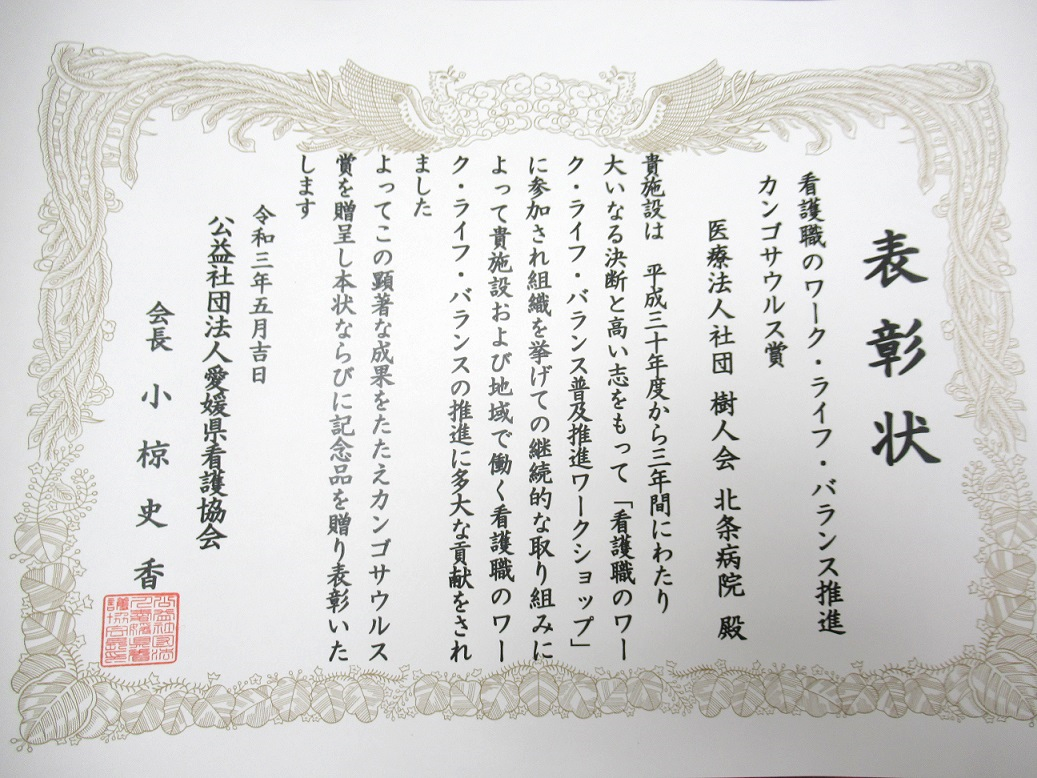 表彰状
看護職のワーク・ライフ・バランス推進
カンゴサウルス賞
医療法人社団 樹人会 北条病院 殿
貴施設は 平成三十年度から三年間にわたり
大いなる決断と高い志をもって「看護職のワー
ク・ライフ・バランス普及推進ワークショップ」
に参加され組織を挙げての継続的な取り組みに
よって貴施設および地域で働く看護職のワー
ク・ライフ・バランスの推進に多大な貢献をされ
ました
よってこの顕著な成果をたたえカンゴサウルス
賞を贈呈し本状ならびに記念品を贈り表彰いた
します
令和三年五月吉日
公益社団法人愛媛県看護協会
会長 小椋史香